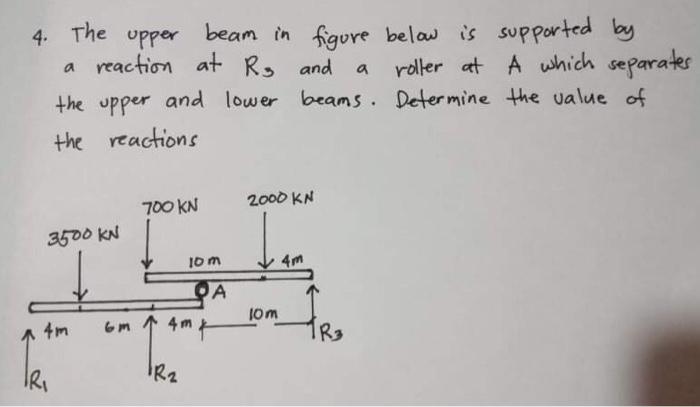 4. The upper beam in figure below is supported by
a reaction at R3 and a roller at A which separates
the upper and lower beams. Determine the value of
the reactions
700 KN
2000 KN
3500 KN
10m
4m
A
4m
6m
4m
10m
R3
R1
R2